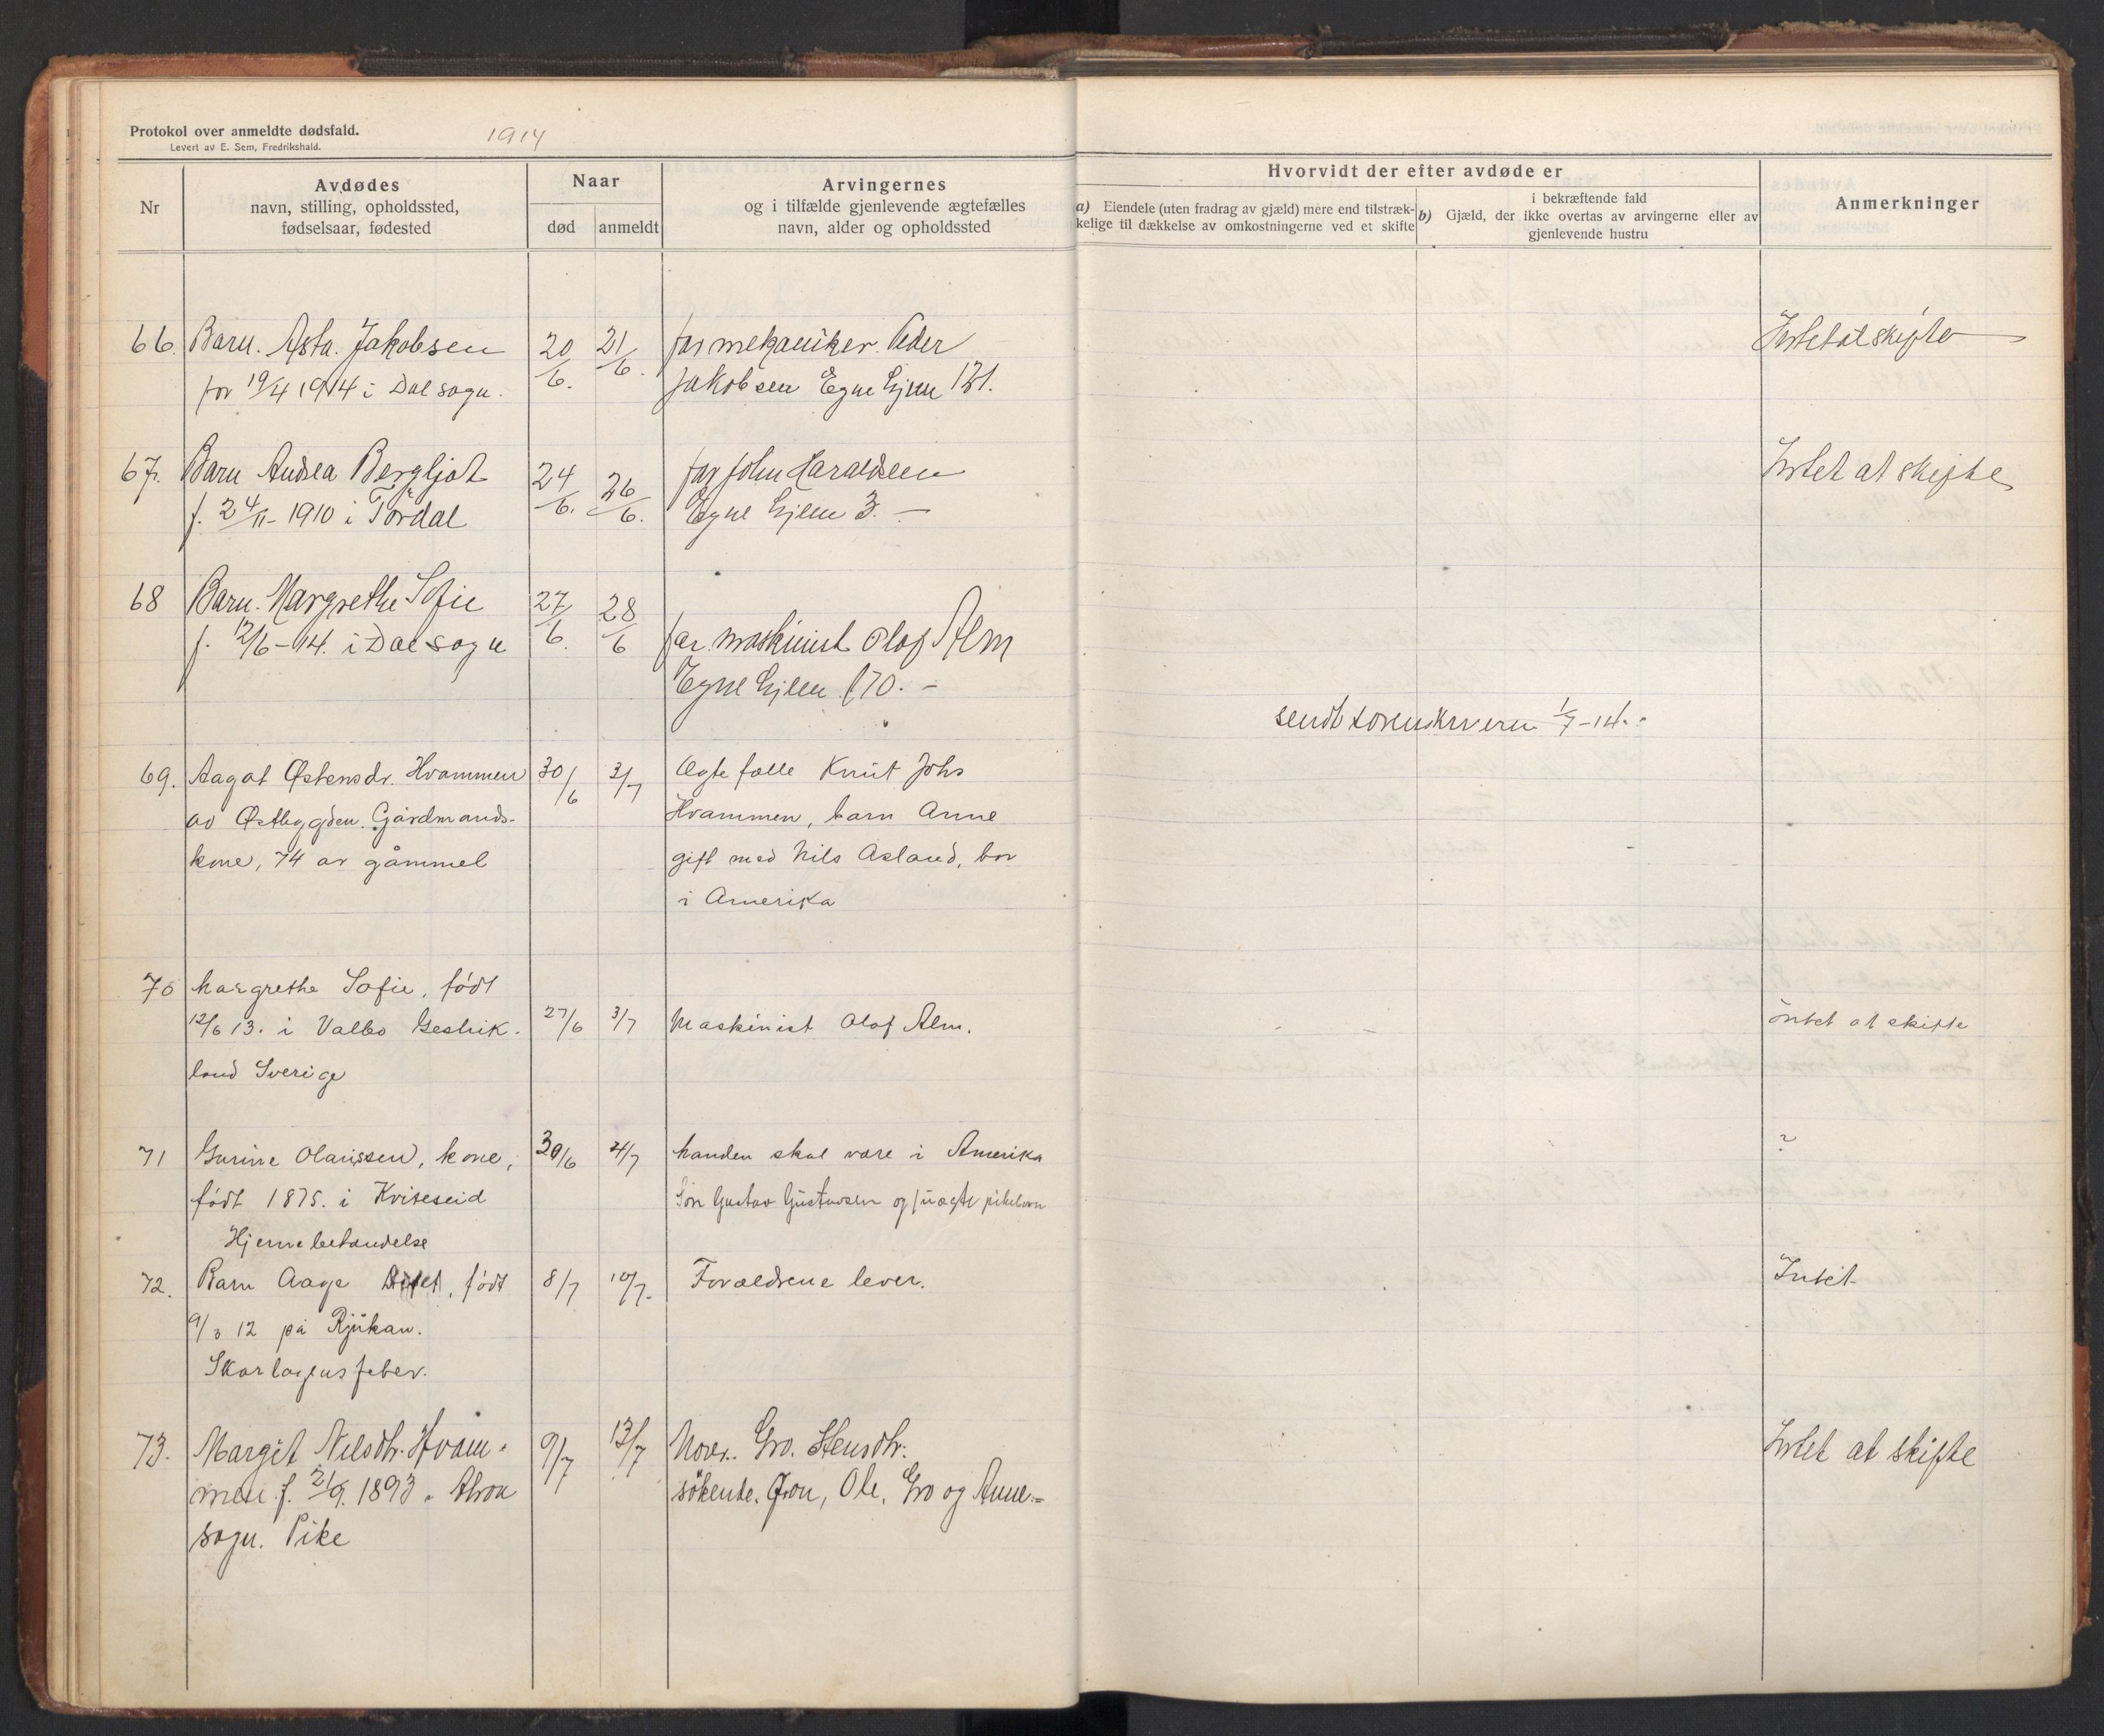 Protokol over anmeldte dødsfald.
Levert av E. Sem, Fredrikshald.
1914
Nr
Avdødes
navn, stilling, opholdssted,
fødselsaar, fødested
Naar
død
anmeldt
Arvingernes
og i tilfælde gjenlevende ægtefælles
navn, alder og opholdssted
Hvorvidt der efter avdøde er
a) Eiendele (uten fradrag av gjæld) mere end tilstræk-
kelige til dækkelse av omkostningerne ved et skifte
i bekræftende fald
b) Gjæld, der ikke overtas av arvingerne eller av
gjenlevende hustru
Anmerkninger
66. Barn. Asta. Jakobsen 20/6. 21/6. far mekaniker. Peder Intet at skifte
for 19/4 1914 i Dal sogn. Jakobsen Egne hjem 131.
67. Barn Andrea Bergljot 24/6. 26/6. far John Haraldsen Intet at skifte
f. 24/11-1910 i Tördal Egne hjem 3. —
68 Barn. Margrethe Sofie 27/6. 28/6
f. 12/6-14. i Dal sogn far maskinist Olaf Alm
Egne hjem 170. -
sendt sorenskriveren 1/7-14.
69. Aagot Østensdr. Hvammen 30/6 3/7 Ægtefælle Knut Johs
av Østbygden. Gårdmands- Hvammen, barn Anne
kone, 74 år gammel gift med Nils Asland, bor
i Amerika
70 Margrethe Sofie, födt
12/6 13. i Valbo Gestrik- 27/6 3/7 Maskinist Olof Alm. intet at skifte
land Sverige
71 Gurine Olaussen, kone, 30/6 4/7 Manden skal være i Amerika ?
födt 1875. i Kviteseid Sön Gustav Gustavsen og uægte pikebarn
Hjernebetændelse
72. Barn Aage, födt 8/7 10/7. Forældrene lever. Intet
9/3 12 på Rjukan.
Skarlagensfeber.
73. Margit Nilsdtr. Hvam- 9/7 13/7 Mor. Gro. Stensdtr. Intet at skifte
men f. 21/9. 1893. Atraa söskende. Jon, Ole, Gro og Anne
sogn. Pike